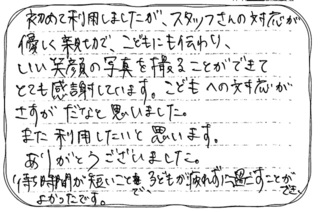 初めて利用しましたが、スタッフさんの対応が
優しく親切で、こどもにも伝わり、
いい笑顔の写真を撮ることができて
とても感謝しています。こどもへの対応が
さすがだなと思いました。
また利用したいと思います。
ありがとうございました。
待ち時間が短いことで、子どもが疲れずに過ごすことができ、
よかったです。